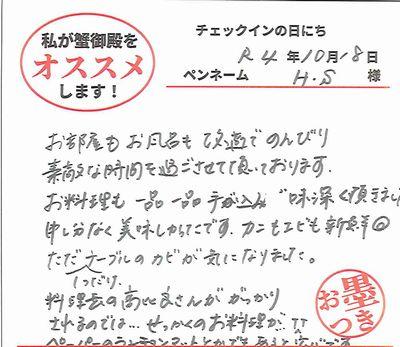 私が蟹御殿を
オススメ
します！
チェックインの日にち
R4年10月18日
ペンネーム H.S 様
お部屋もお風呂も快適でのんびり
素敵な時間を過ごさせて頂いております。
お料理も一品一品手が込み味深く頂きまし
申し分なく美味しかったです。カニもエビも新鮮◎
ただテーブルのカビが気になりました。
1つだけ。
料理長の高比良さんががっかり
されるのでは…せっかくのお料理が、
ペーパーのランチョンマットとかでも
お墨つき